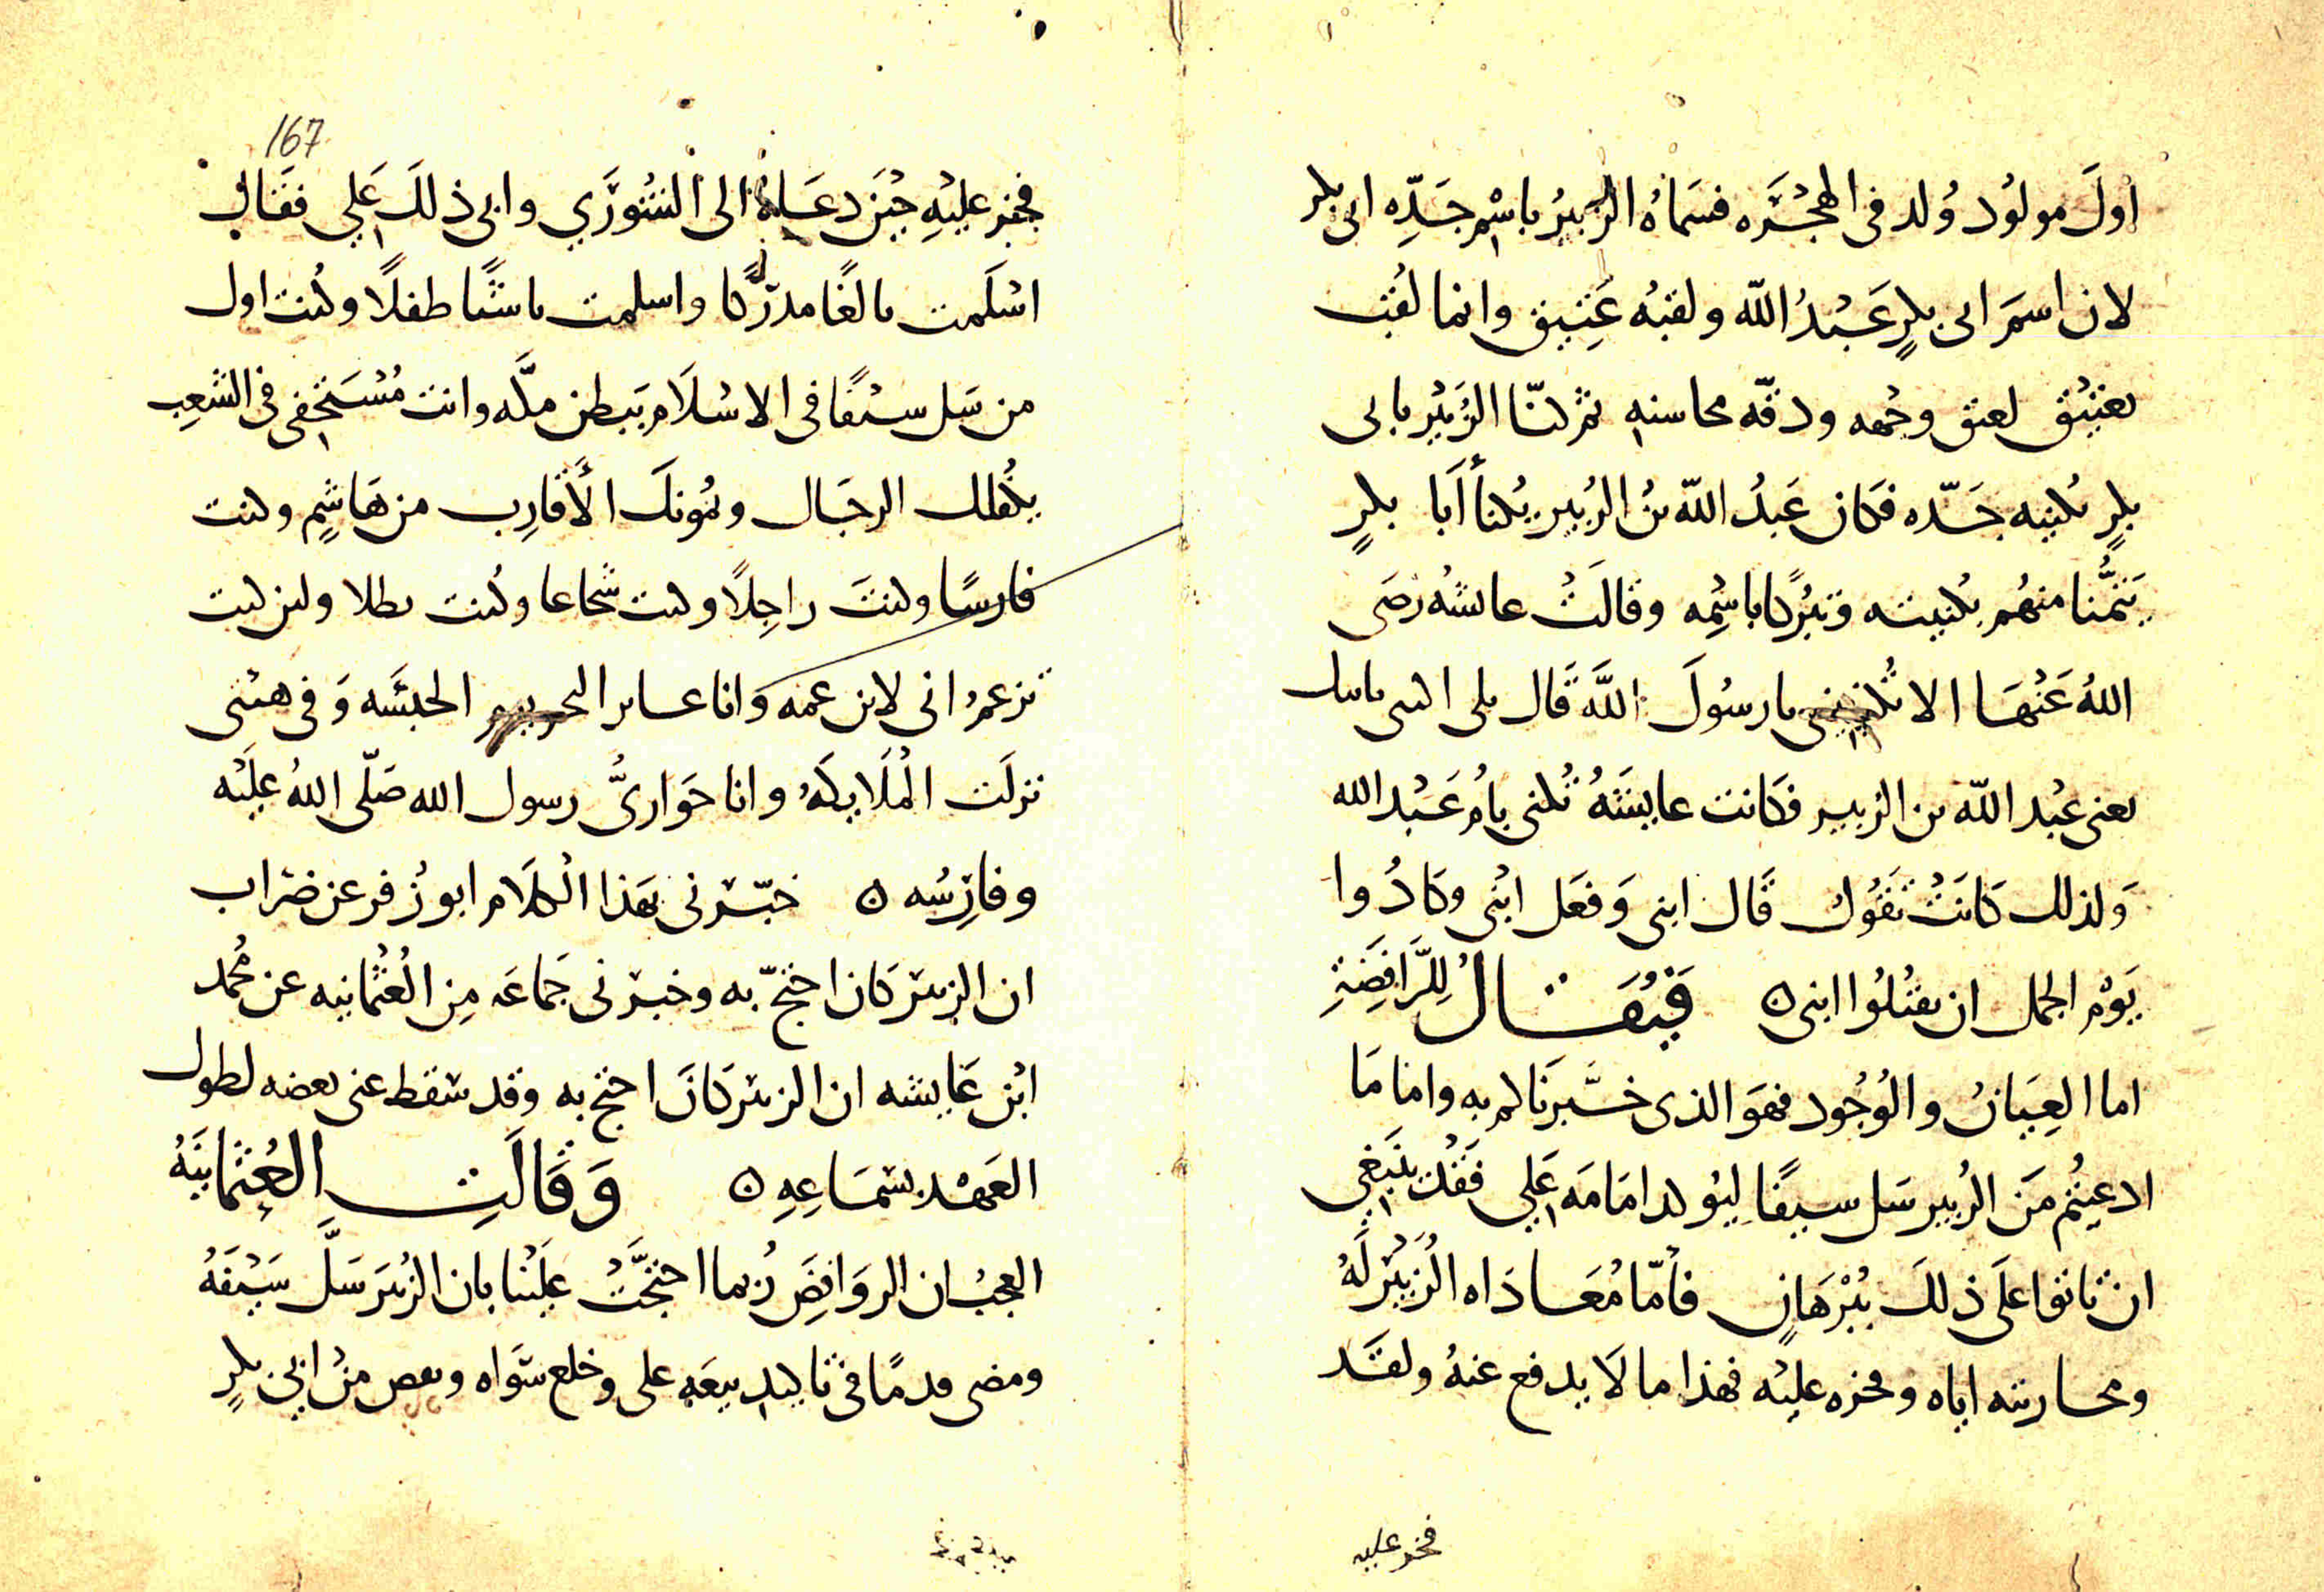 اولَ مولُود وُلد فى الهجْرَه فسَماهُ الزُبيرُ باسْم جَدِّه ابى بكر
لان اسمَ ابى بكرٍ عَبْدُ اللّه ولقبُه عَتِيق وانما لقُب
بعَتيْق لعتق وجْهه ودقّه محاسنه ثم كنّا الزُبَيْر بابى
بكرٍ بكنيه جَدّه فكان عَبدُ اللّه بنُ الزُبير يُكنأ أَبا بكرٍ
تيَمُّنا منهُم بكنيته وتبرُّكا باسْمِه وقالَتْ عائشهُ رضَى
اللهُ عَنْهَا الا تُكنينى يا رسُولَ اللَّه قَال بلى اكتنى بابنك
يعنى عبْد اللّه بن الزبير فكانت عايشَةُ تُكنى بامُ عَبْد الله
وَلذلك كَانَتْ تقُول قَال ابنى وَفعَل ابْنى وكادُوا
يَوْم الجمل ان يقتُلُوا ابنى ه فيُقَال لِلرَّافِضَةِ
اما العِيَانُ والوُجُود فهوَ الذى خبَّرنَاكم به واما مَا
ادعيتُم مَن الزُبير سَل سيفًا ليُوكد امَامَه عَلِي فقَد ينبَغي
ان تاتوا علَى ذلكَ بُبْرهَانٍ فأمّا مُعَادَاه الزُبَيْر لَهُ
ومحاربته اياه وفخره عليْه فهذا ما لَا يدفع عنهُ ولقَد
فخر عليه
167
فخر عليْهِ حيْنَ دعَاهُ الى الشُورَي وابى ذلكَ عَلي فقَال
اسْلَمت بالغًا مدركًا واسلمت ناشئًا طفلًا وكُنت اول
من سَل سيْفًا فى الاسْلَام ببَطن مكَّه وانت مُسْتَخفى فى الشعِب
يكْفُلك الرجَال ويمُونكَ الأَقارِب من هَاشِمٍ وكنت
فارسًا وكنتَ راجِلًا وكنت شجاعا وكُنت بطلا ولئن كنت
تزعمُ انى لابن عمه وَانا عابر البحر الحبَشَه وَفى هيْئتى
نزلَت المْلَايكَهُ وانا حَوَارىُّ رسول الله صَلّى اللهُ علَيْه
وفارِسُه ه خبّرنى بهَذا الْكلَام ابو زُفر عن ضراب
ان الزبيَر كَان احتجّ به وخبرنى جَماعَه مِن العُثْمانيه عن مُحمد
ابْن عَايشه ان الزبيَر كَانَ احتج به وقد سَقط عنى بعضه لطول
العَهْد بسَمَاعِهِ ه وَقَالَتِ العُثِمانيَّهُ
العجبُ ان الروَافِضَ رُبما احتجَّتْ علَيْنا بان الزُبيَر سَلَّ سَيْفَهُ
ومضى قدمًا فى تاكيد بيعَه على وخلع سَواه ونقض من ابى بكرٍ